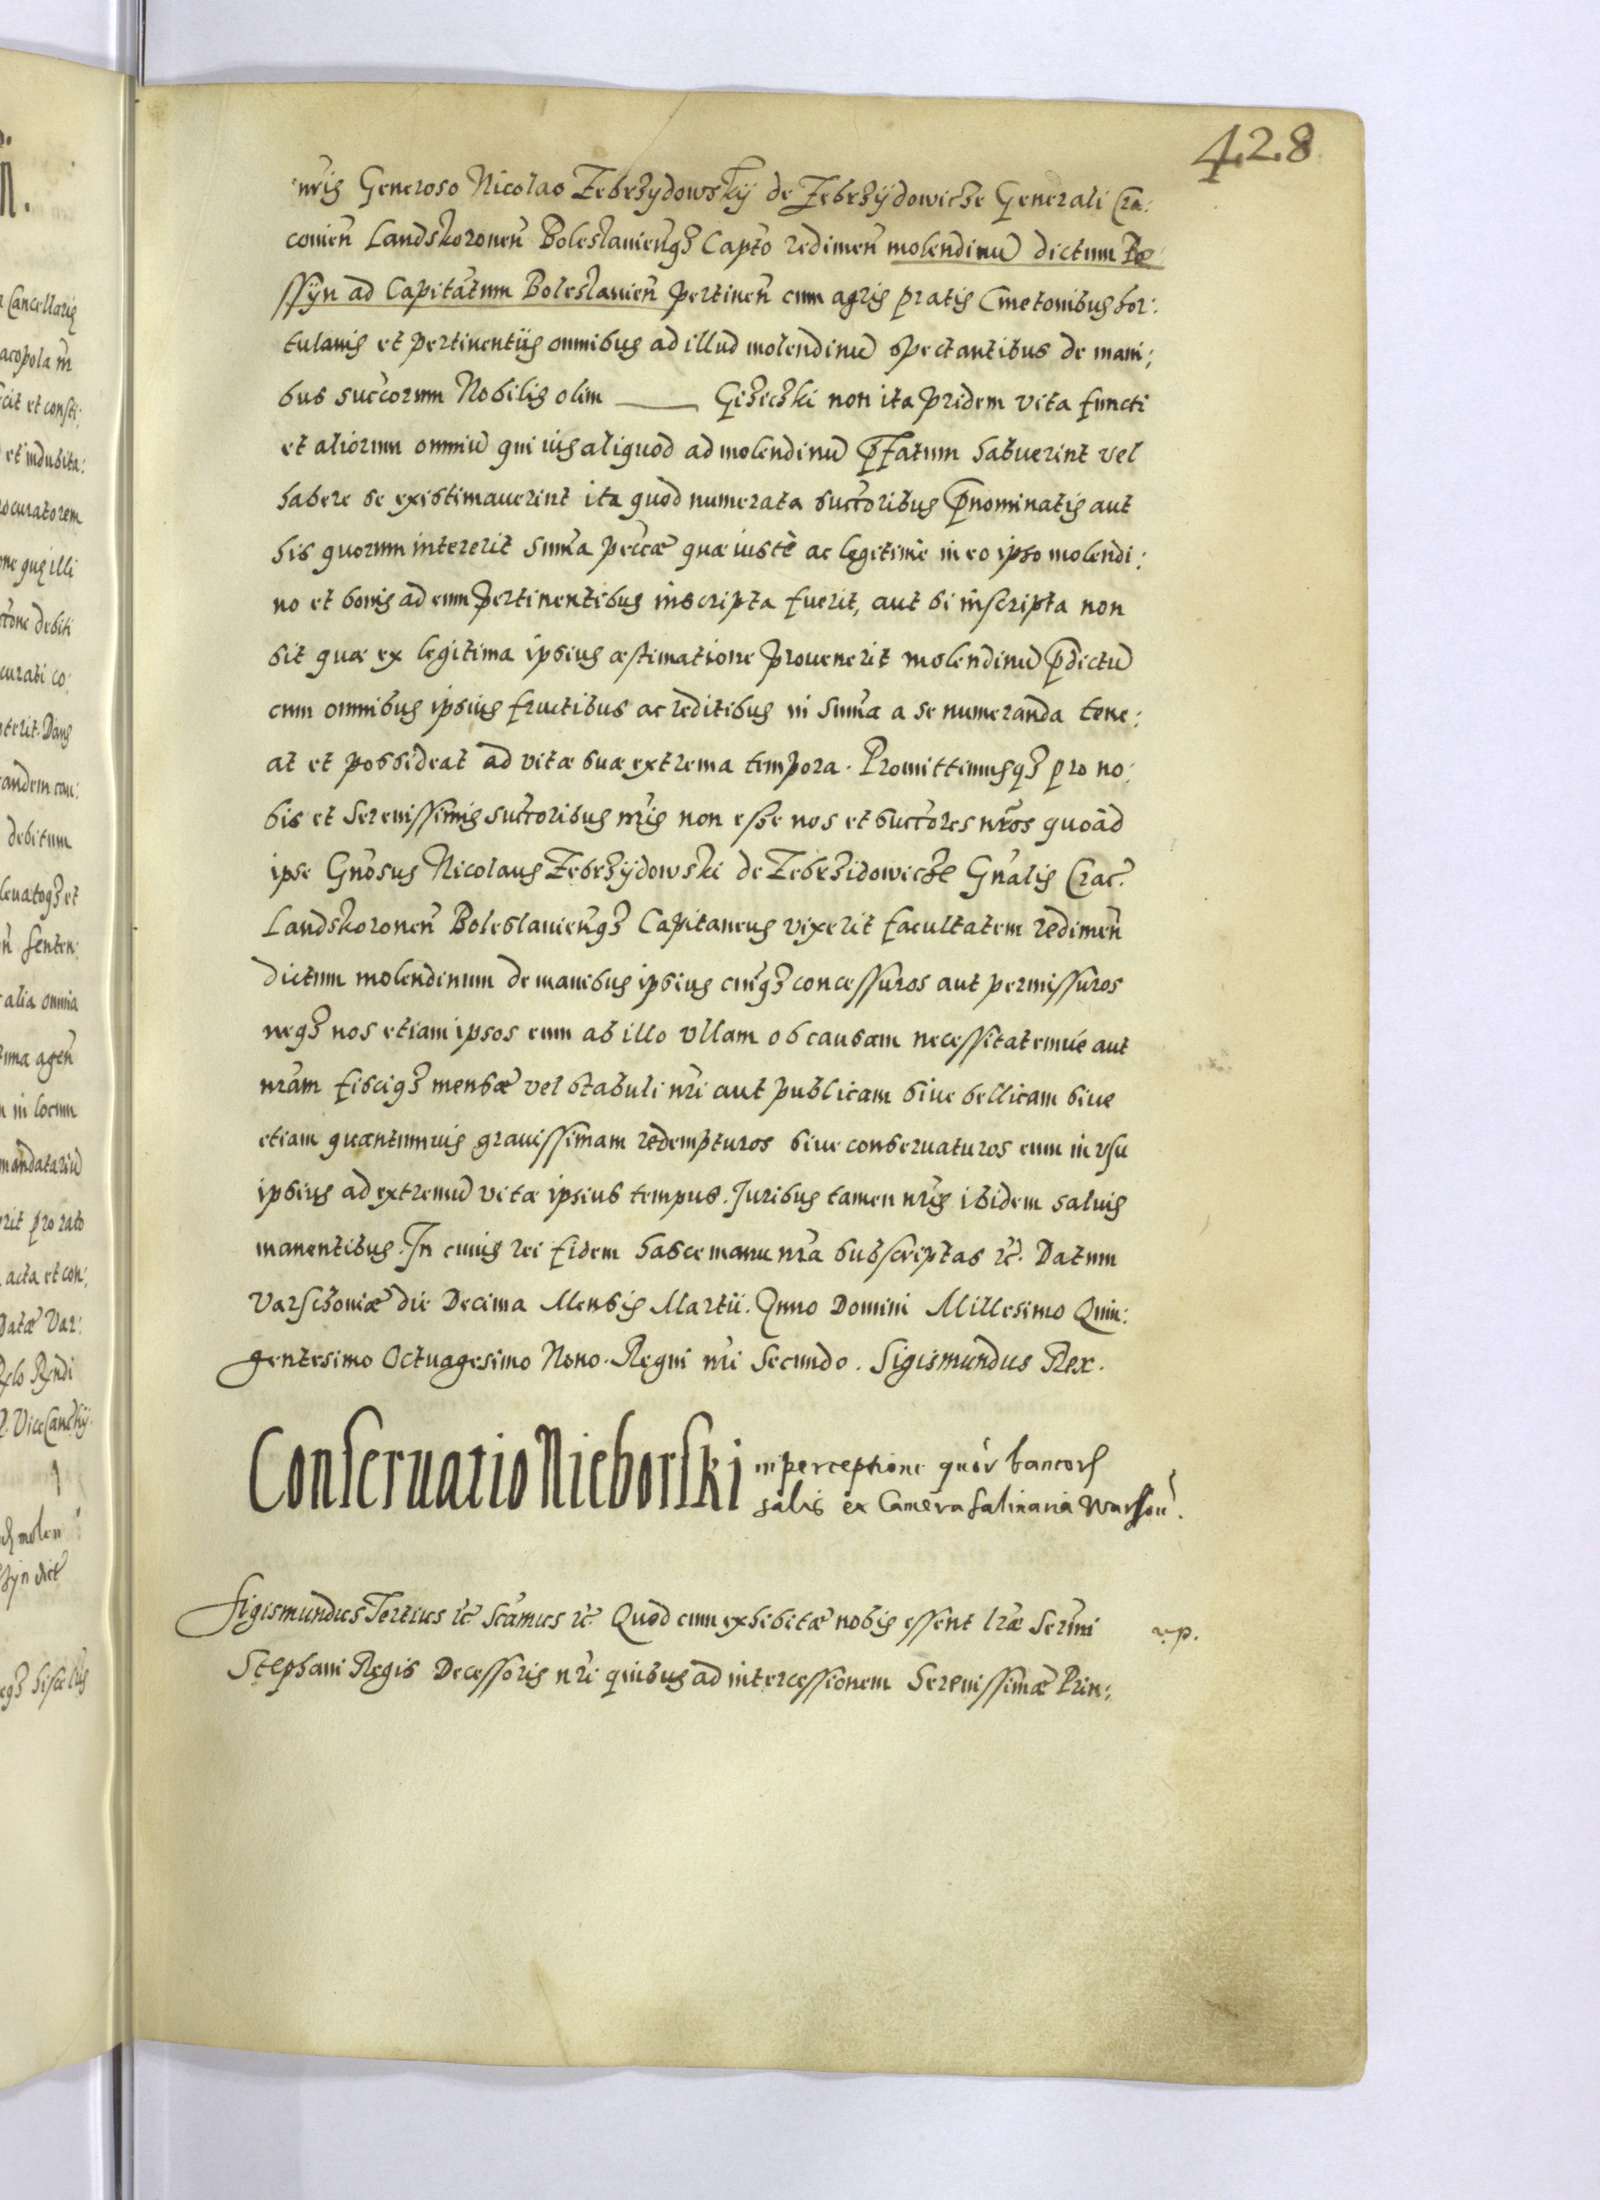 428
nris Generoso Nicolao Zebrzydowskÿ de Zebrzÿdowicze Generali Cra:
couien Landskoronen Boleslauienqȝ Capto redimen molendinū dictum Bo
ssÿn ad Capitatum Boleslauien pertinen cum agris pratis Cmetonibus hor:
tulanis et pertinentiis omnibus ad illud molendinū spectantibus de mani:
bus succorum Nobilis olim ——— Giżiczki non ita pridem vita functi
et aliorum omniū qui ius aliquod ad molendinū pfatum habuerint vel
habere se existimauerint ita quod numerata succoribus pnominatis aut
his quorum intererit suma pecæ quæ iustè ac legitimè in eo ipso molendi:
no et bonis ad eum pertinentibus inscripta fuerit, aut si inscripta non
sit quæ ex legitima ipsius æstimatione prouenerit molendinū pdictū
cum omnibus ipsius fructibus ac reditibus in suma a se numeranda tene:
at et possideat ad vitæ suæ extrema tempora. Promittimusqȝ pro no:
bis et Serenissimis succoribus nris non esse nos et succores nros quoad
ipse Gnosus Nicolaus Zebrzÿdowski de Zebrzidowicze Gnalis Crac.
Landskoronen Boleslauienqȝ Capitaneus vixerit facultatem redimen
dictum molendinum de manibus ipsius cuiqȝ concessuros aut permissuros
neqȝ nos etiam ipsos eum ab illo vllam ob causam necessitatemue aut
nram fisciqȝ mensæ vel stabuli nri aut publicam siue bellicam siue
etiam quantumuis grauissimam redempturos siue conseruaturos eum in vsu
ipsius ad extremū vitæ ipsius tempus. Juribus tamen nris ibidem saluis
manentibus. In cuius rei fidem hasce manu nra subscriptas &c. Datum
Varschouiæ die Decima Mensis Martii. Anno Domini Millesimo Quin:
gentesimo Octuagesimo Nono. Regni nri Secundo. Sigismundus Rex.
Conseruatio Nieborski in perceptione quor bancor
salis ex Camera salinaria Warsou.
Sigismundus Tertius &c Scamus &c Quod cum exhibitæ nobis essent lræ Sermi
Stephani Regis Decessoris nri quibus ad intercessionem Serenissimæ Prin: